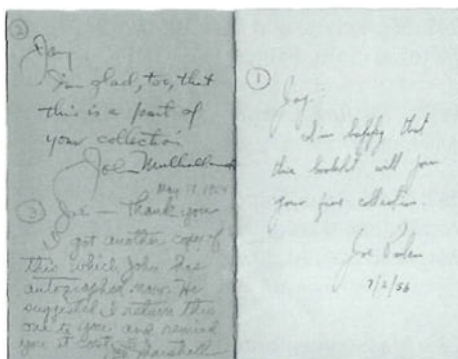 ②
Jay
I'm glad, too, that
this is a part of
your collection
John Mulholland
May 17, 19
③ Jo — Thank you
I got another copy of
this which John has
autographed now. He
suggested I return this
one to you and remind
you it cost
Jay Marshall
①
Jay,
I am happy that
this booklet will join
your fine collection.
Joe
7/2/56